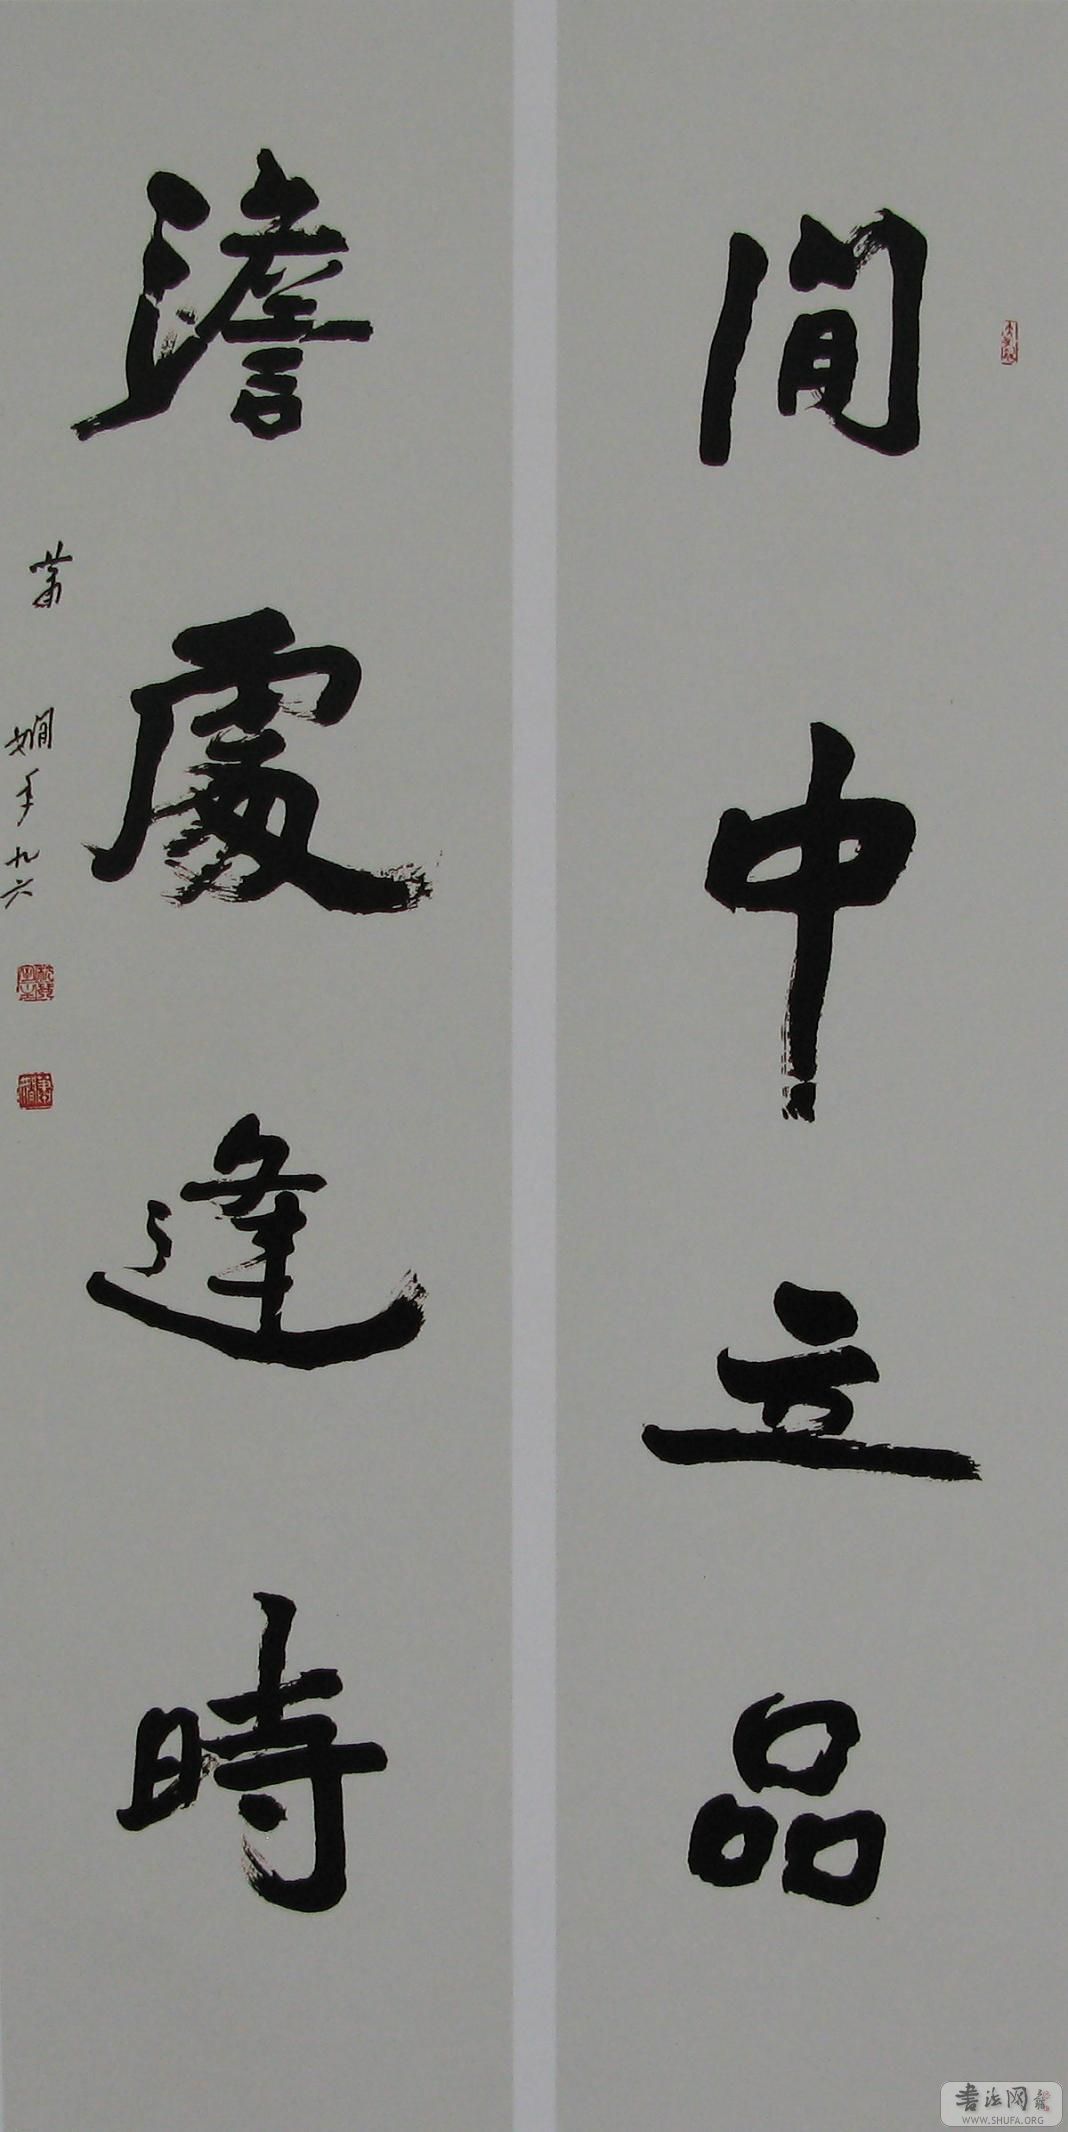 閒中立品
澹處逢時
蕭嫻年九六
書法网
WWW.SHUFA.ORG